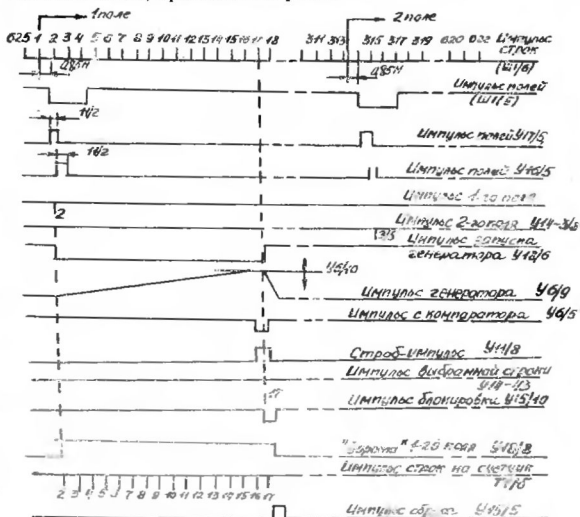 1 поле 2 поле
625 1 2 3 4 5 6 7 8 9 10 11 12 13 14 15 16 17 18 311 313 315 317 319 620 622 Импульс строк
(Ш1/6)
0,85H 0,85H
Импульс полей
(Ш1/5)
H/2
Импульс полей У17/5
H/2
Импульс полей У16/5
Импульс 1-го поля
2
Импульс 2-го поля У14-3/5
Импульс запуска
генератора У12/6
У6/10
Импульс генератора У6/9
Импульс с компаратора У6/5
Строб-импульс У11/8
Импульс выбранной строки
Импульс блокировки У15/10
Импульс строк на счетчик
2 3 4 5 6 7 8 9 10 11 12 13 14 15 16 17
У15/5